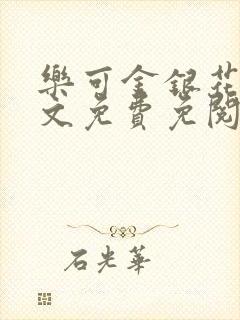 樂可金銀花
文免費免閱
石光華